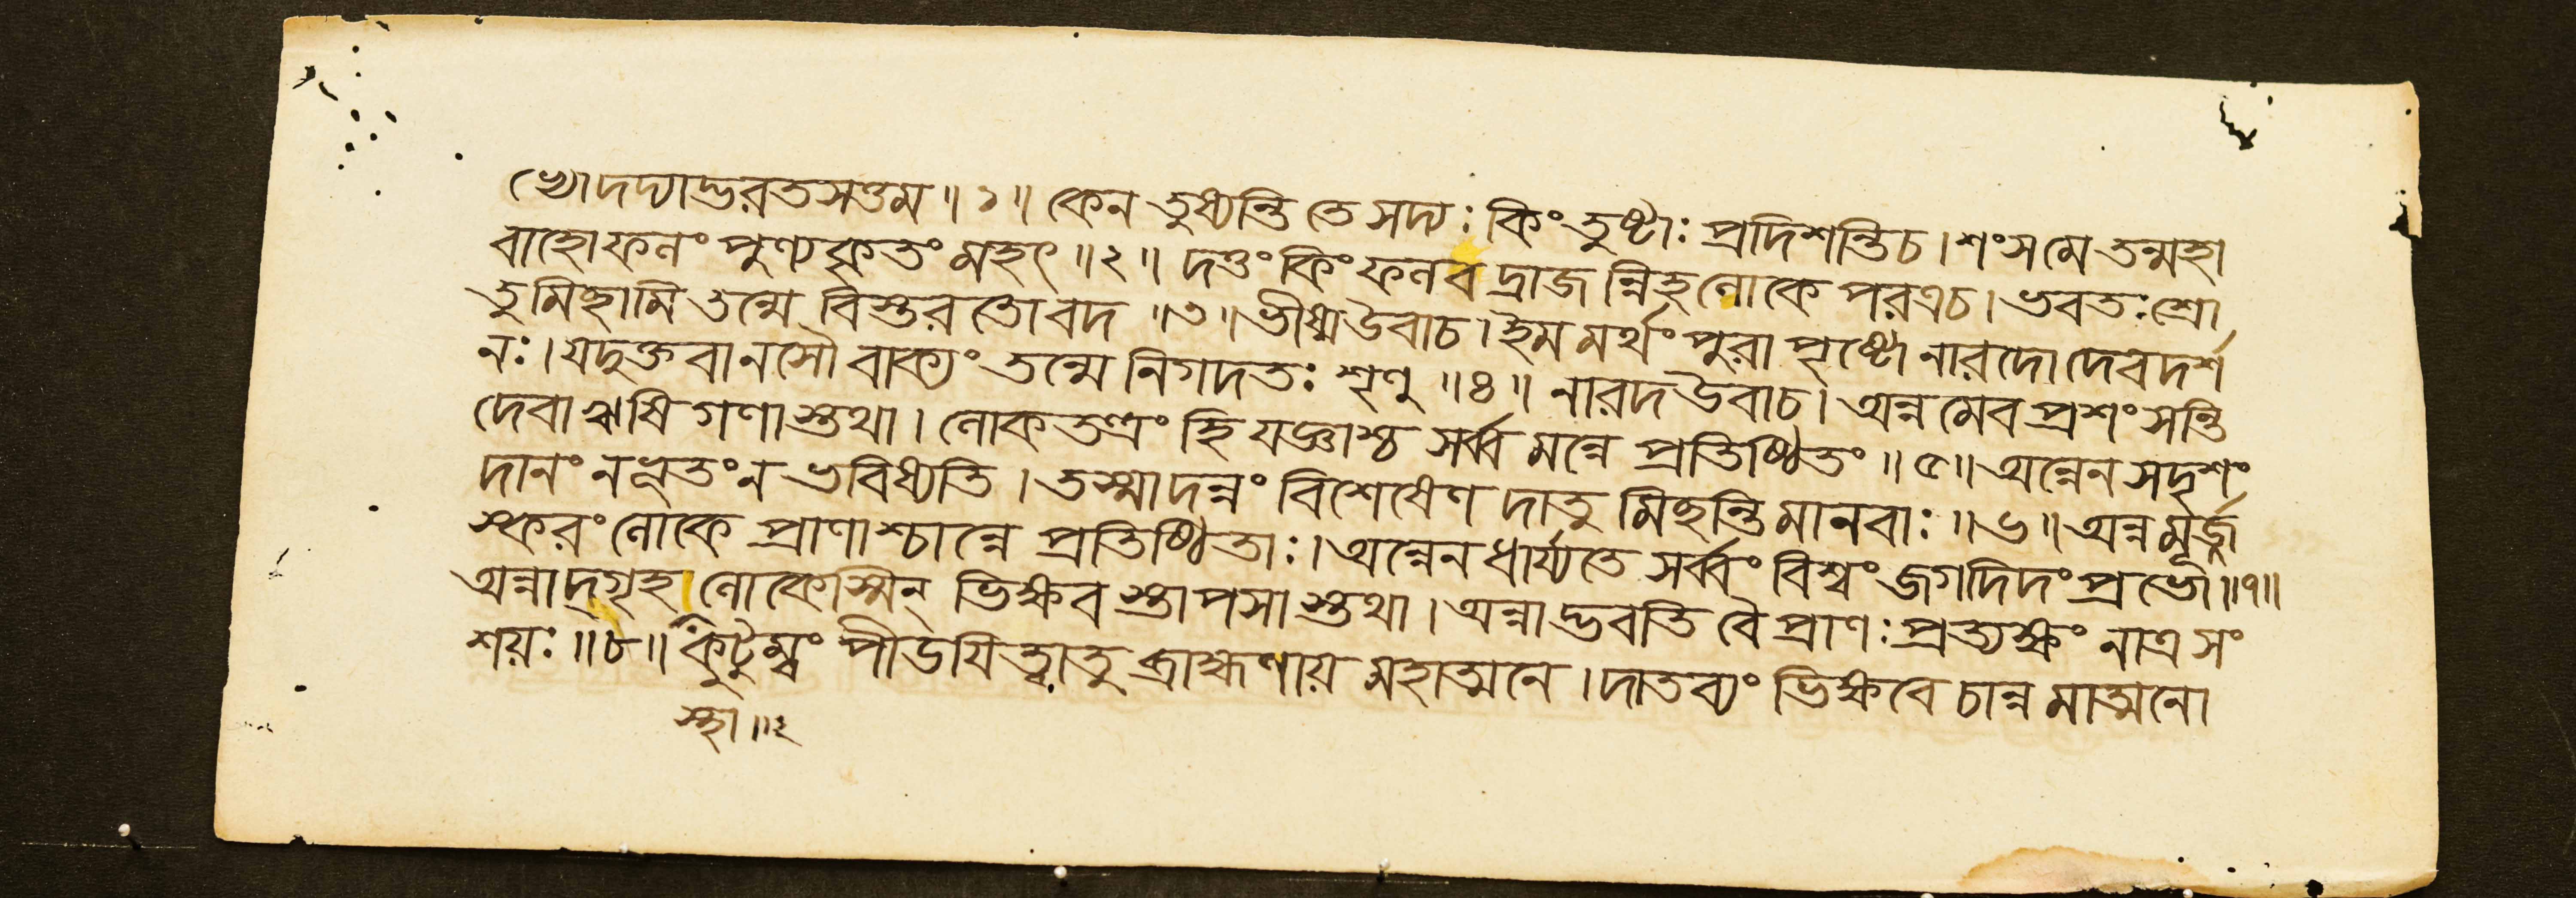 ভ্যোদদ্যাদ্ভরতসত্তম॥১॥কেন তুষ্যন্তি তে সদ্যঃ কিং তুষ্টাঃ প্রদিশন্তিচ।শংসমে তন্মহা
বাহোফলং পুণ্যকৃতং মহৎ॥২॥দত্তং কিং ফলবদ্রাজন্নিহলোকে পরত্রচ।ভবতঃশ্রো
তুমিছামি তন্মে বিস্তরতোবদ॥৩॥ভীষ্মউবাচ।ইমমর্থং পুরা পৃষ্টোনারদোদেবদর্শ
নঃ।যদুক্তবানসৌ বাক্যং তন্মে নিগদতঃ শৃণু॥৪॥নারদউবাচ।অন্নমেবপ্রশংসন্তি
দেবাঋষিগণাস্তথা।লোকতন্ত্রং হি যজ্ঞাশ্চ সর্ব্বমন্নে প্রতিষ্ঠিতং॥৫॥অন্নেনসদৃশং
দানং নভূতংন ভবিষ্যতি।তস্মাদন্নং বিশেষেণ দাতুমিছন্তিমানবাঃ॥৬॥অন্নমূর্জ্জ
স্করংলোকে প্রাণাশ্চান্নে প্রতিষ্ঠিতাঃ।অন্নেনধার্য্যতে সর্ব্বং বিশ্বং জগদিদংপ্রভো॥৭॥
অন্নাদ্গৃহস্থালোকেস্মিন্ ভিক্ষবস্তাপসাস্তথা।অন্নাদ্ভবন্তি বৈ প্রাণঃপ্রত্যক্ষং নাত্রসং
শয়ঃ॥৮॥কুটুম্বং পীডযিত্বাতু ব্রাহ্মণায় মহাত্মনে।দাতব্যং ভিক্ষবে চান্নমাত্মনো
স্থা॥২